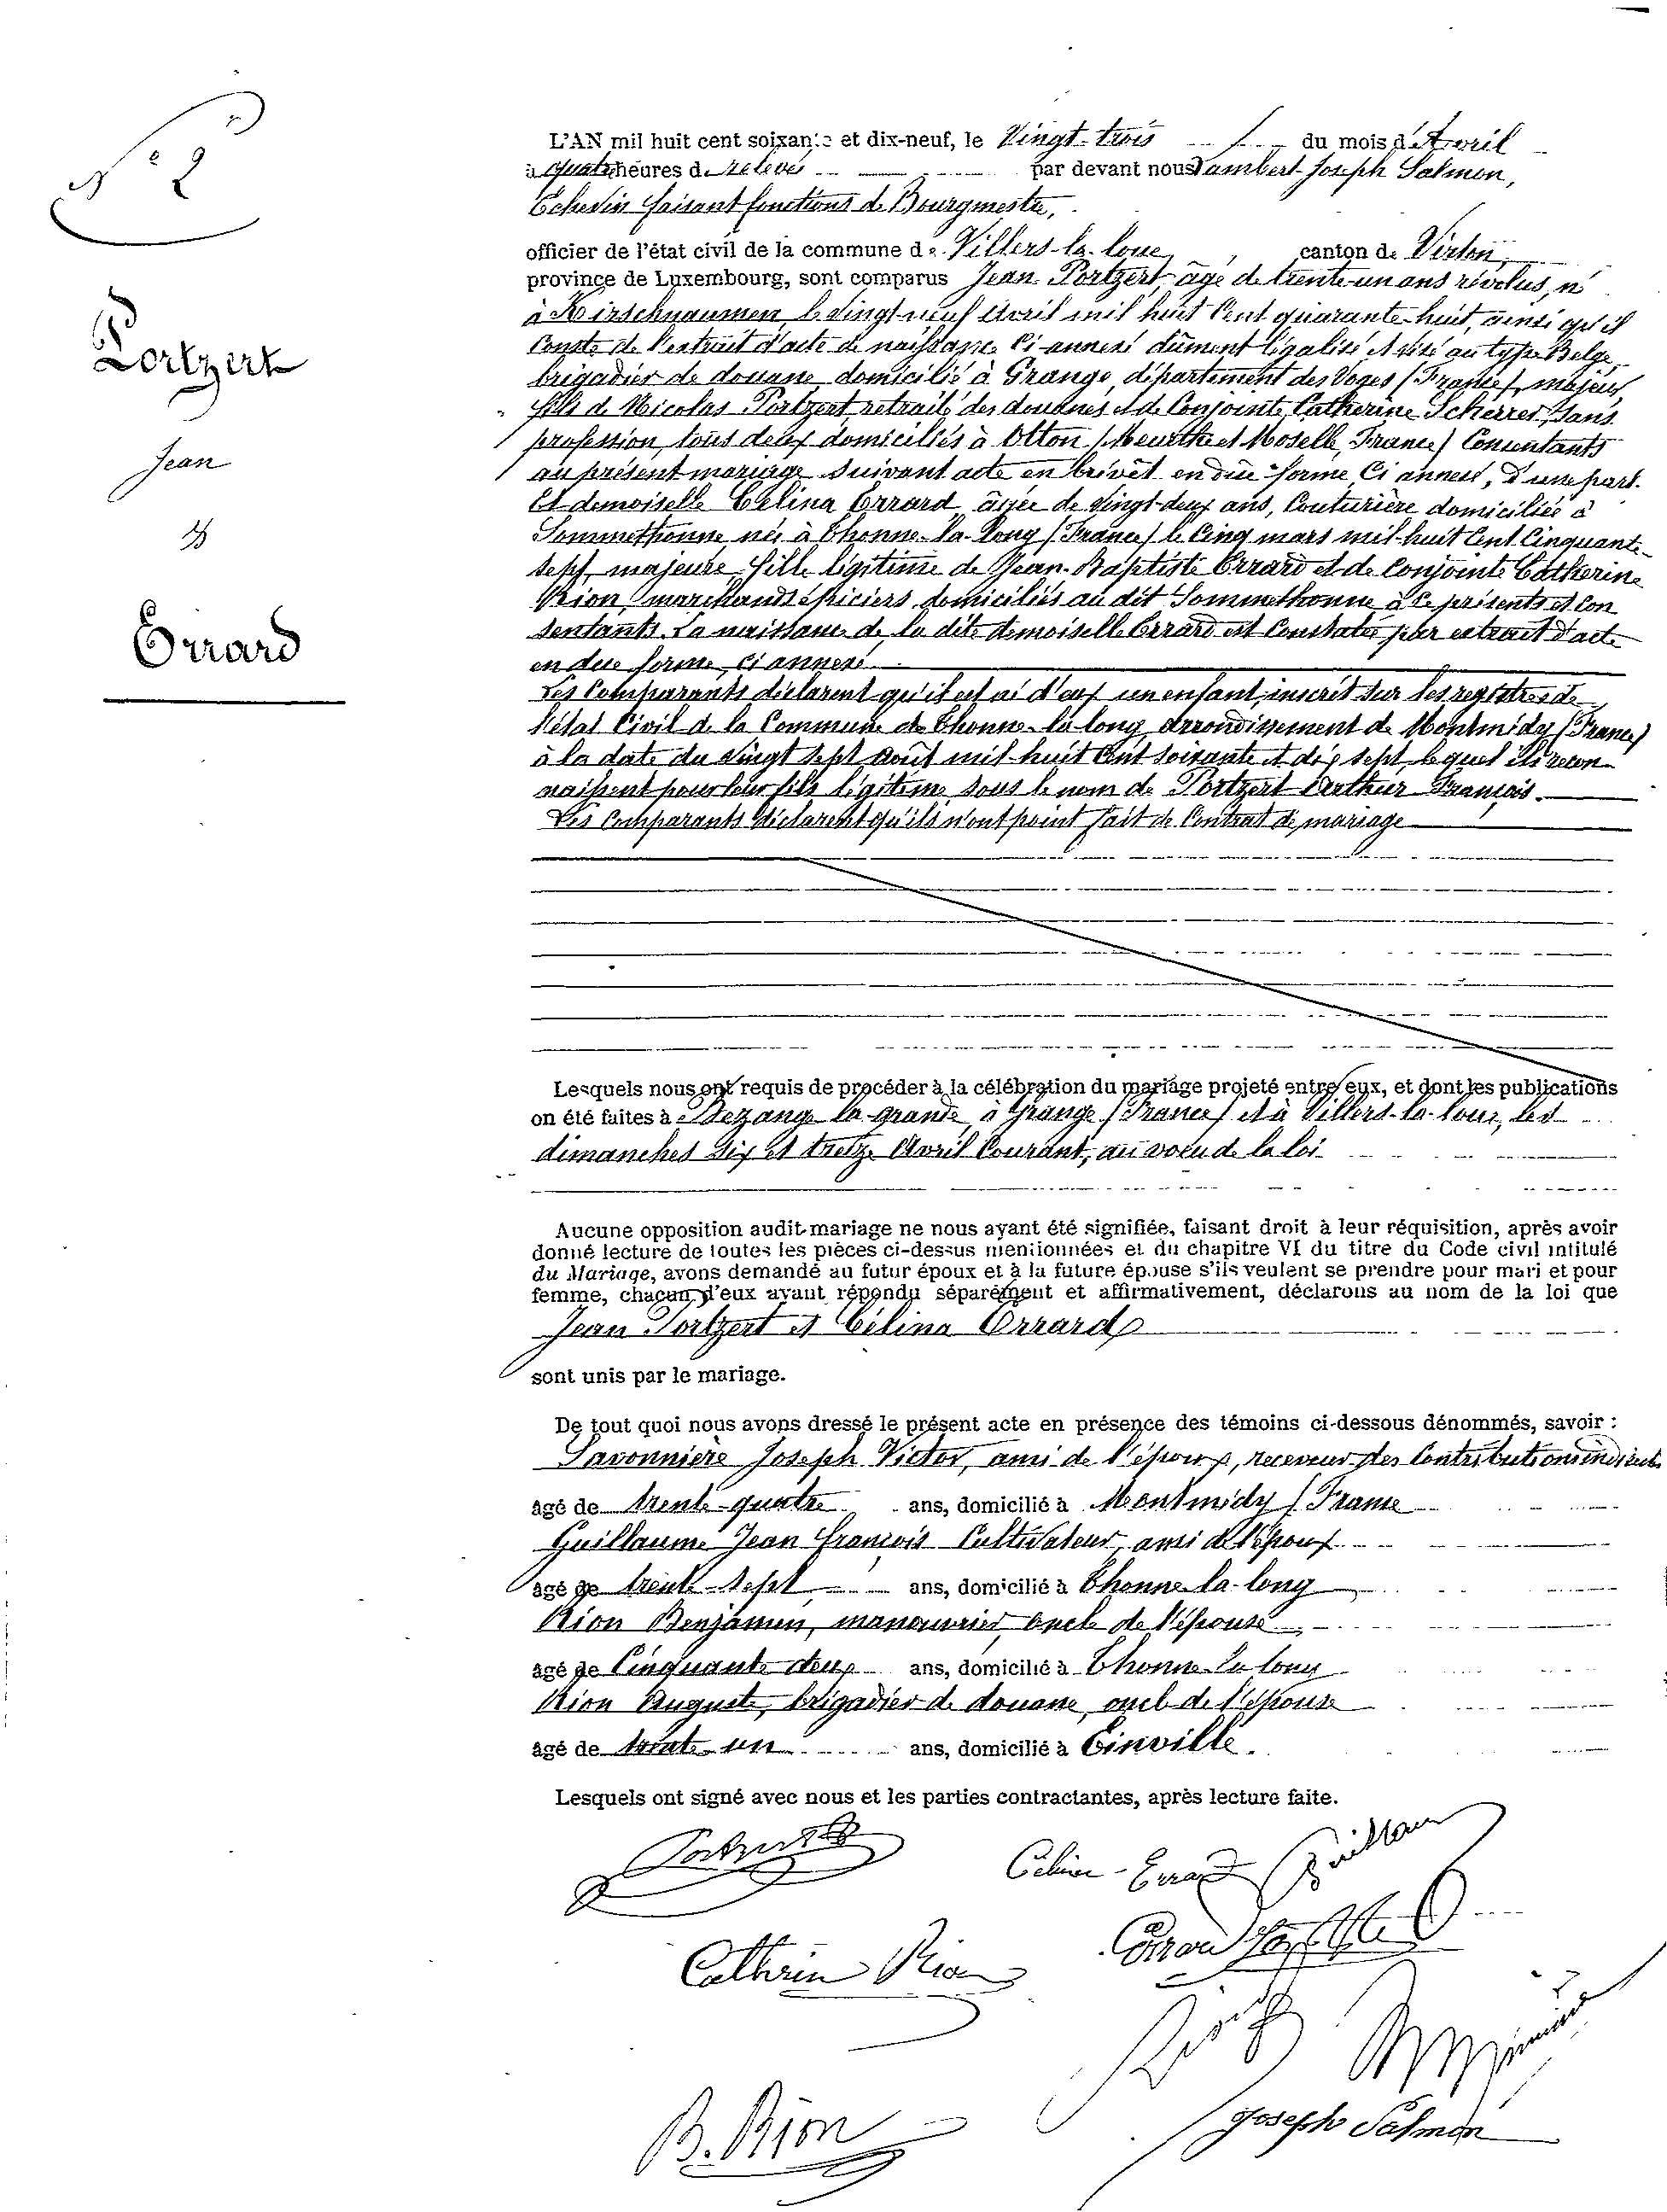 N° 2
Portzert
Jean
&
Errard
L'AN mil huit cent soixante et dix-neuf, le Vingt-trois du mois d'Avril
à quatre heures de relevée par devant nous Lambert-Joseph Salmon,
Echevin faisant fonctions de Bourgmestre,
officier de l'état civil de la commune de Villers-la-loue, canton de Virton,
province de Luxembourg, sont comparus Jean Portzert, âgé de trente-un ans révolus, né
à Kirschnaumen le vingt-neuf Avril mil huit Cent quarante-huit, ainsi qu'il
Conste de l'extrait d'acte de naissance Ci-annexé dûment légalisé et visé au type Belge,
brigadier de douane domicilié à Grange, département des Voges (France), majeur,
fils de Nicolas Portzert retraité des douanes et de Conjointe Catherine Scherrer, sans
profession, tous deux domiciliés à Otton (Meurthe et Moselle, France) Consentants
au présent mariage suivant acte en brévet en due forme Ci annexé, D'une part.
Et demoiselle Célina Errard âgée de vingt-deux ans, Couturière domiciliée à
Sommethonne née à Thonne-la-long (France) le Cinq mars mil-huit Cent Cinquante-
sept, majeure, fille légitime de Jean-Baptiste Errard et de Conjointe Catherine
Rion, marchands épiciers, domiciliés au dit Sommethonne, à Ce présents et Con
sentants. La naissance de la dite demoiselle Errard est Constatée par extrait d'acte
en due forme, Ci annexé.
Les Comparants déclarent qu'il est né d'eux un enfant, inscrit sur les registres de
l'état Civil de la Commune de Thonne-la-long, arrondissement de Montmédy (France)
à la date du vingt sept Août mil-huit Cent soixante et dix sept lequel ils recon-
naissent pour leur fils légitime sous le nom de Portzert Arthur François.
Les Comparants déclarent qu'ils n'ont point fait de Contrat de mariage
Lesquels nous ont requis de procéder à la célébration du mariage projeté entre eux, et dont les publications
on été faites à Bezange-la-grande, à Grange (France) et à Villers-la-loue, les
dimanches six et treize Avril Courant, au voeu de la loi
Aucune opposition audit mariage ne nous ayant été signifiée, faisant droit à leur réquisition, après avoir
donné lecture de toutes les pièces ci-dessus mentionnées et du chapitre VI du titre du Code civil intitulé
du Mariage, avons demandé au futur époux et à la future épouse s'ils veulent se prendre pour mari et pour
femme, chacun d'eux ayant répondu séparément et affirmativement, déclarons au nom de la loi que
Jean Portzert et Célina Errard
sont unis par le mariage.
De tout quoi nous avons dressé le présent acte en présence des témoins ci-dessous dénommés, savoir :
Savonnière Joseph Victor, ami de l'époux, receveur des Contributions indirectes
âgé de trente-quatre ans, domicilié à Montmédy (France
Guillaume Jean François Cultivateur, ami de l'époux
âgé de trente-sept ans, domicilié à Thonne-la-long
Rion Benjamin, manouvrier, oncle de l'épouse
âgé de Cinquante-deux ans, domicilié à Thonne-la-long
Rion Auguste, brigadier de douane, oncle de l'épouse
âgé de trente-un ans, domicilié à Einville.
Lesquels ont signé avec nous et les parties contractantes, après lecture faite.
Portzert
Célina Errard Guillaume
Catherin Rion Errard
B. Rion
Joseph Salmon